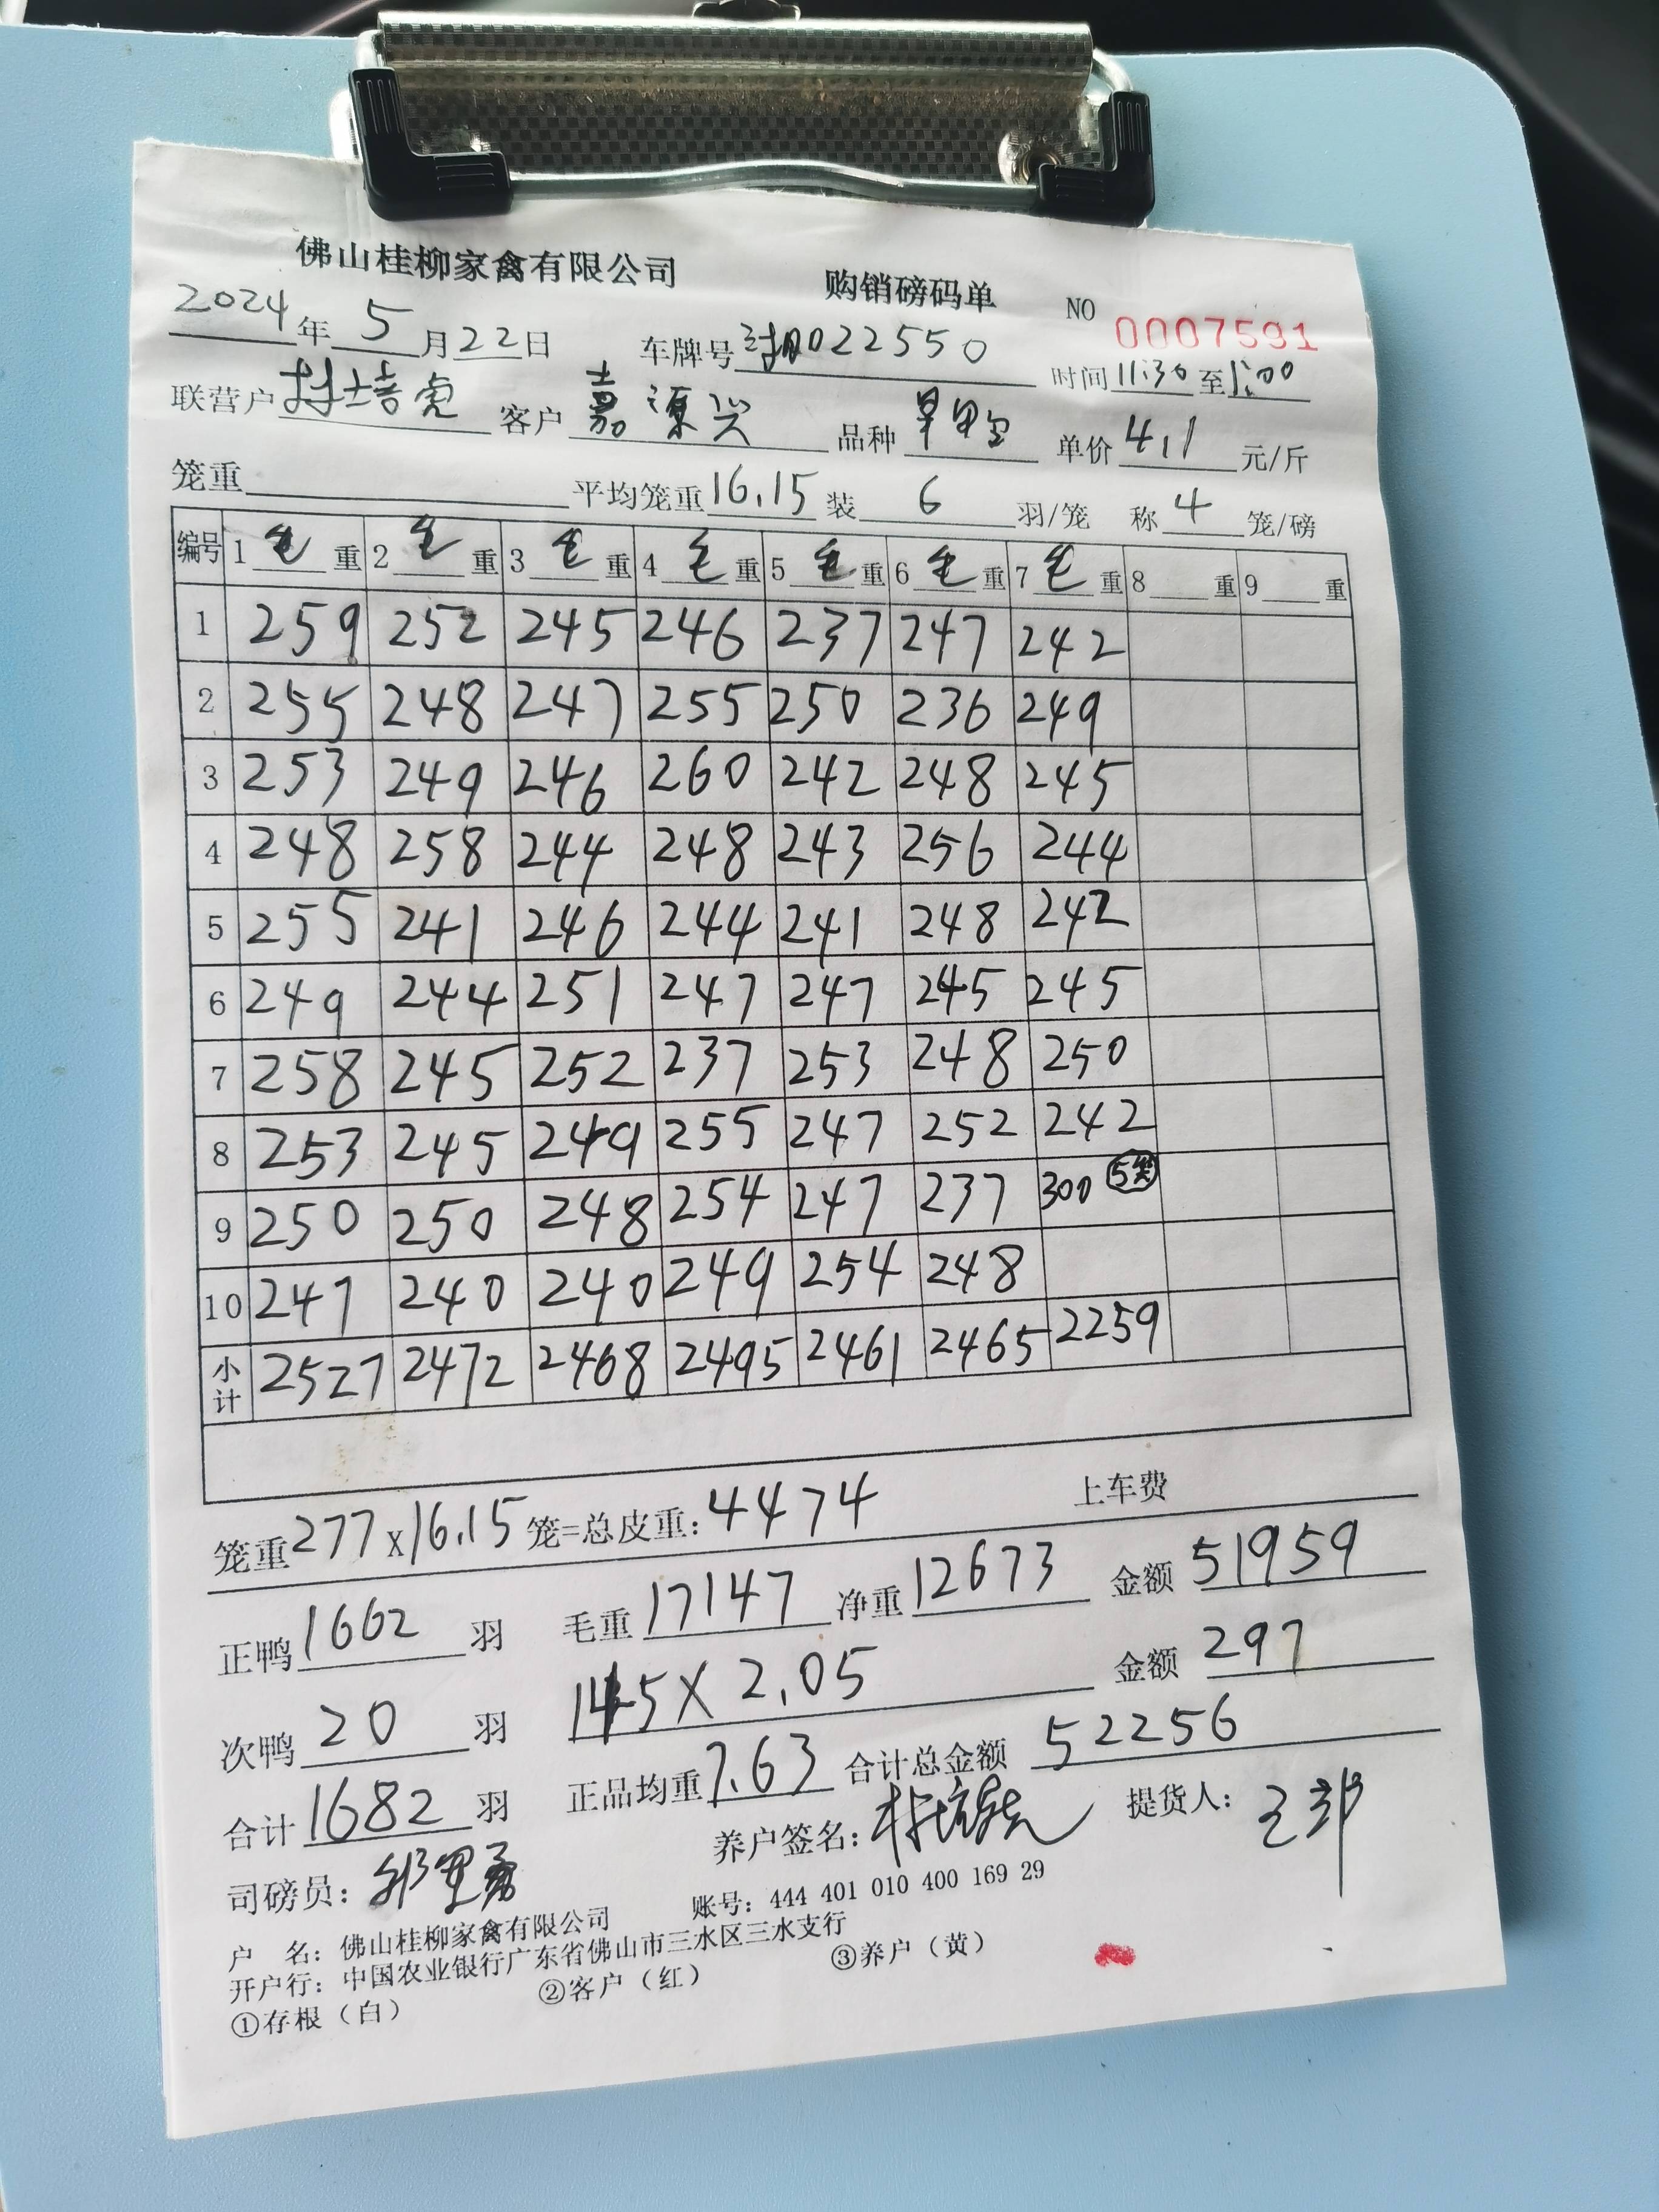 佛山桂柳家禽有限公司 购销磅码单 NO 0007591
2024年5月22日 车牌号 022550 时间11:30至1:00
联营户 培虎 客户 嘉源兴 品种 单价4.1元/斤
笼重 平均笼重16.15装6羽/笼 称4笼/磅
编号 1毛重 2毛重 3毛重 4毛重 5毛重 6毛重 7毛重 8重 9重
1 259 252 245 246 237 247 242
2 255 248 247 255 250 236 249
3 253 249 246 260 242 248 245
4 248 258 244 248 243 256 244
5 255 241 246 244 241 248 242
6 249 244 251 247 247 245 245
7 258 245 252 237 253 248 250
8 253 245 249 255 247 252 242
9 250 250 248 254 247 237 300 5笼
10 247 240 240 249 254 248
小计 2527 2472 2468 2495 2461 2465 2259
笼重277x16.15笼=总皮重：4474 上车费
正鸭1662羽 毛重17147净重12673 金额51959
次鸭20羽 145X2.05 金额297
合计1682羽 正品均重7.63 合计总金额52256
司磅员： 养户签名： 提货人：
户 名：佛山桂柳家禽有限公司 账号：444 401 010 400 169 29
开户行：中国农业银行广东省佛山市三水区三水支行
①存根（白） ②客户（红） ③养户（黄）